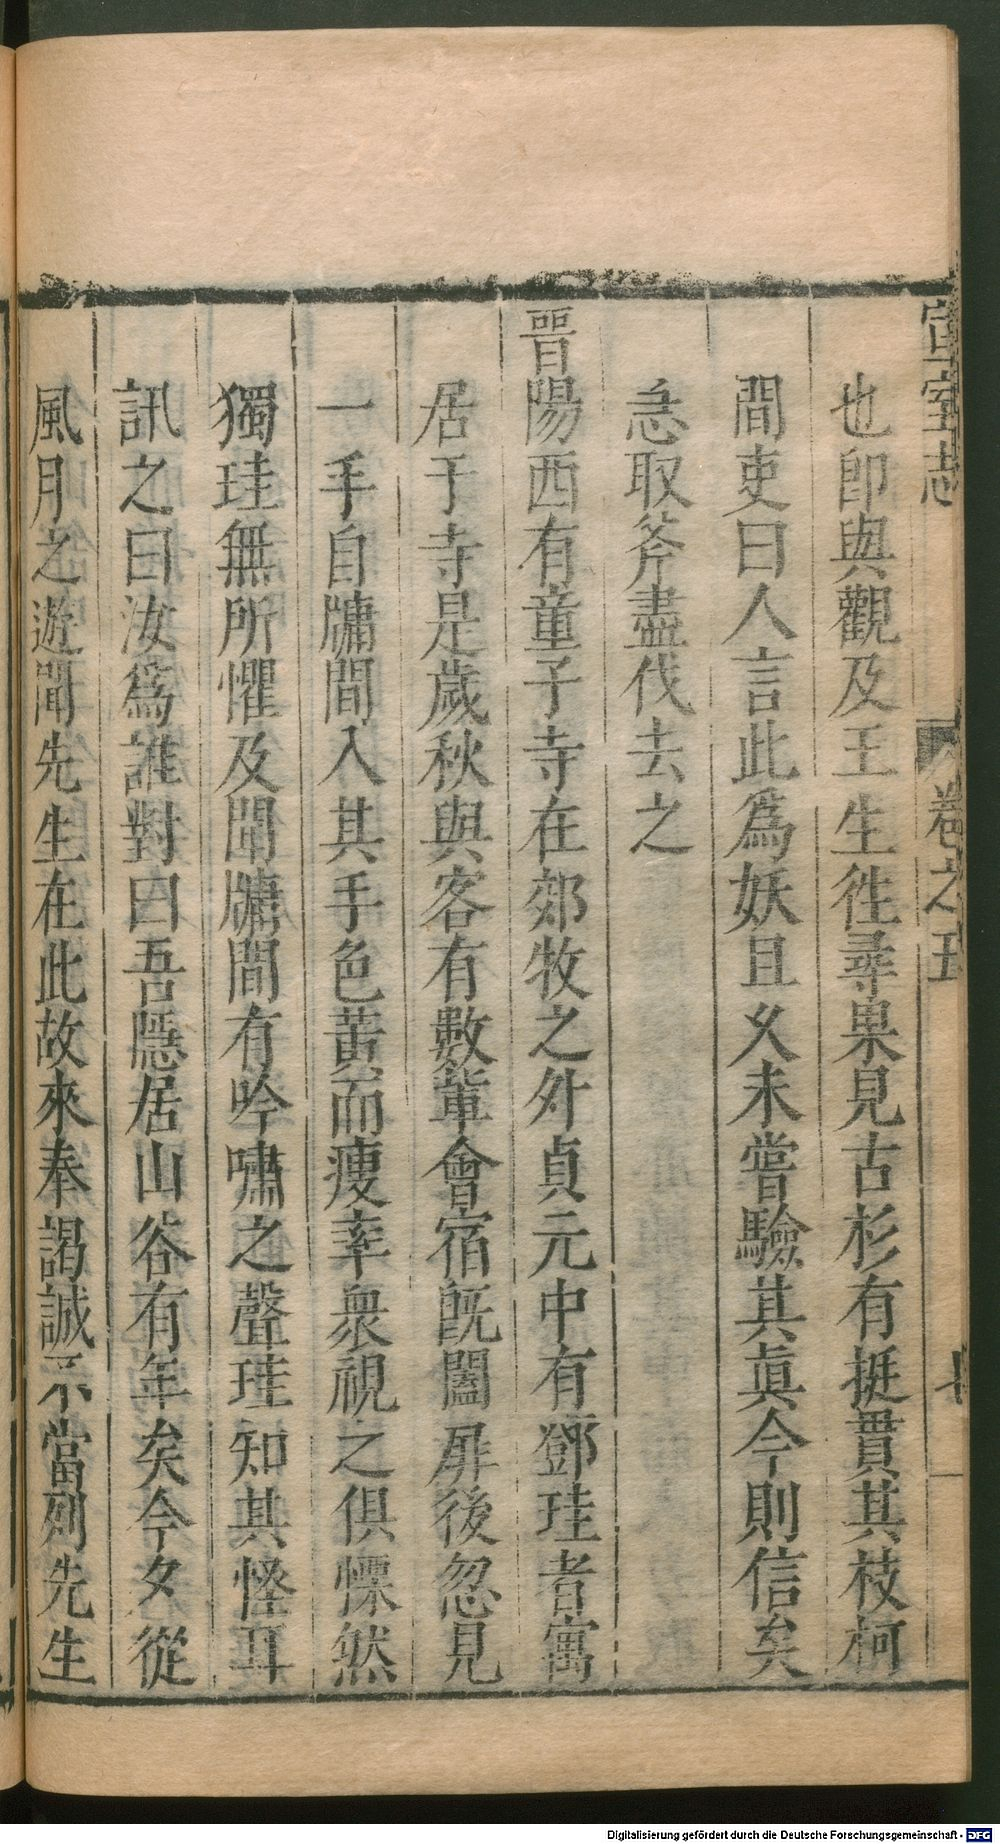 宣室志 卷之五 七
也卽與觀及王生徃尋果見古杉有挺貫其枝柯
間吏曰人言此爲妖且久未嘗驗其眞今則信矣
急取斧盡伐去之
晉陽西有童子寺在郊牧之外貞元中有鄧珪者寓
居于寺是歲秋與客有數輩會宿旣闔扉後忽見
一手自牗間入其手色黃而瘦率衆視之俱慄然
獨珪無所懼及聞牗間有吟嘯之聲珪知其怪耳
訊之曰汝爲誰對曰吾隱居山谷有年矣今夕從
風月之遊聞先生在此故來奉謁誠不當列先生
Digitalisierung gefördert durch die Deutsche Forschungsgemeinschaft - DFG